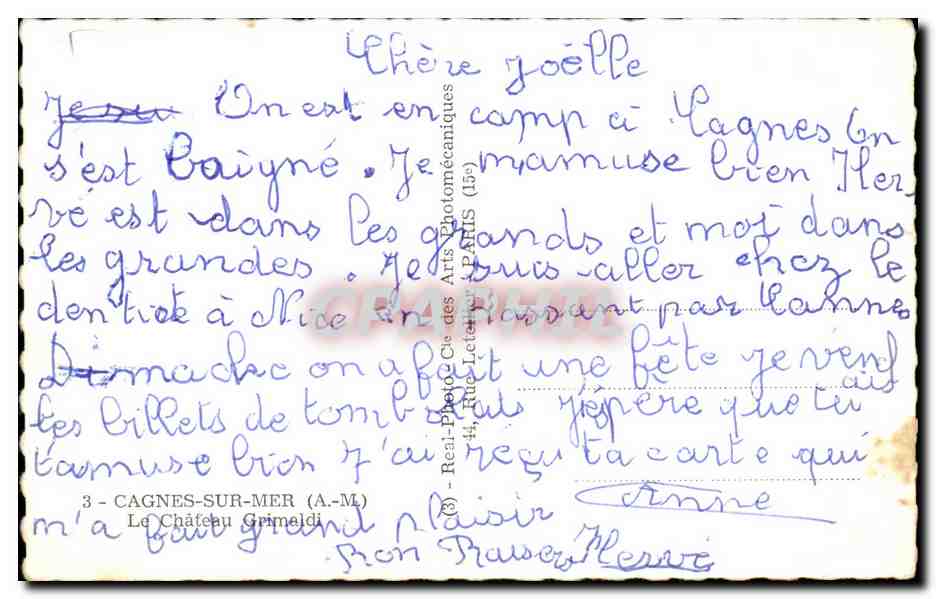 Chère Joëlle
On est en camp à Cagnes On
s'est baigné. Je m'amuse bien Her-
vé est dans les grands et moi dans
les grandes. Je suis aller chez le
dentide à Nice en passant par Canne
Dimache on a fait une fête je vend
ait
les billets de tombolas J'éspère que tu
t'amuse bien J'ai reçu ta carte qui
m'a fait grand plaisir Anne
Bon Baiser Hervé
3 - CAGNES-SUR-MER (A.-M.)
Le Château Grimaldi
(3) - Real-Photo Cie des Arts Photomécaniques
44, Rue Letellier - PARIS (15e)
CPAPHIL